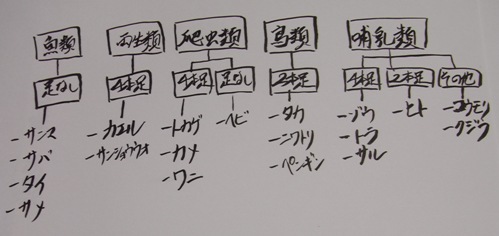 魚類
足なし
-サンス
-サバ
-タイ
-サメ
両生類
4本足
-カエル
-サンショウウオ
爬虫類
4本足
-トカゲ
-カメ
-ワニ
足なし
-ヘビ
鳥類
2本足
-タカ
-ニワトリ
-ペンギン
哺乳類
4本足
-ゾウ
-トラ
-サル
2本足
-ヒト
その他
-コウモリ
-クジラ